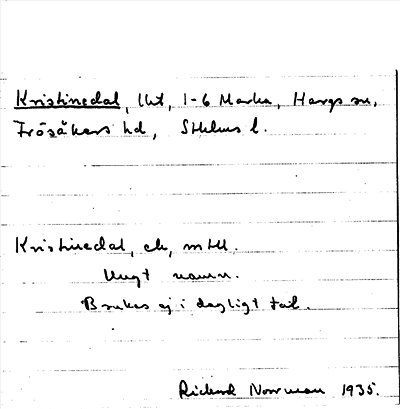 Kristinedal, lht, 1-6 Marka, Hargs sn,
Frösåkers hd, Sthlms l.
Kristinedal, ck, mtll.
Ungt namn.
Brukas ej i dagligt tal.
Rickard Norrman 1935.